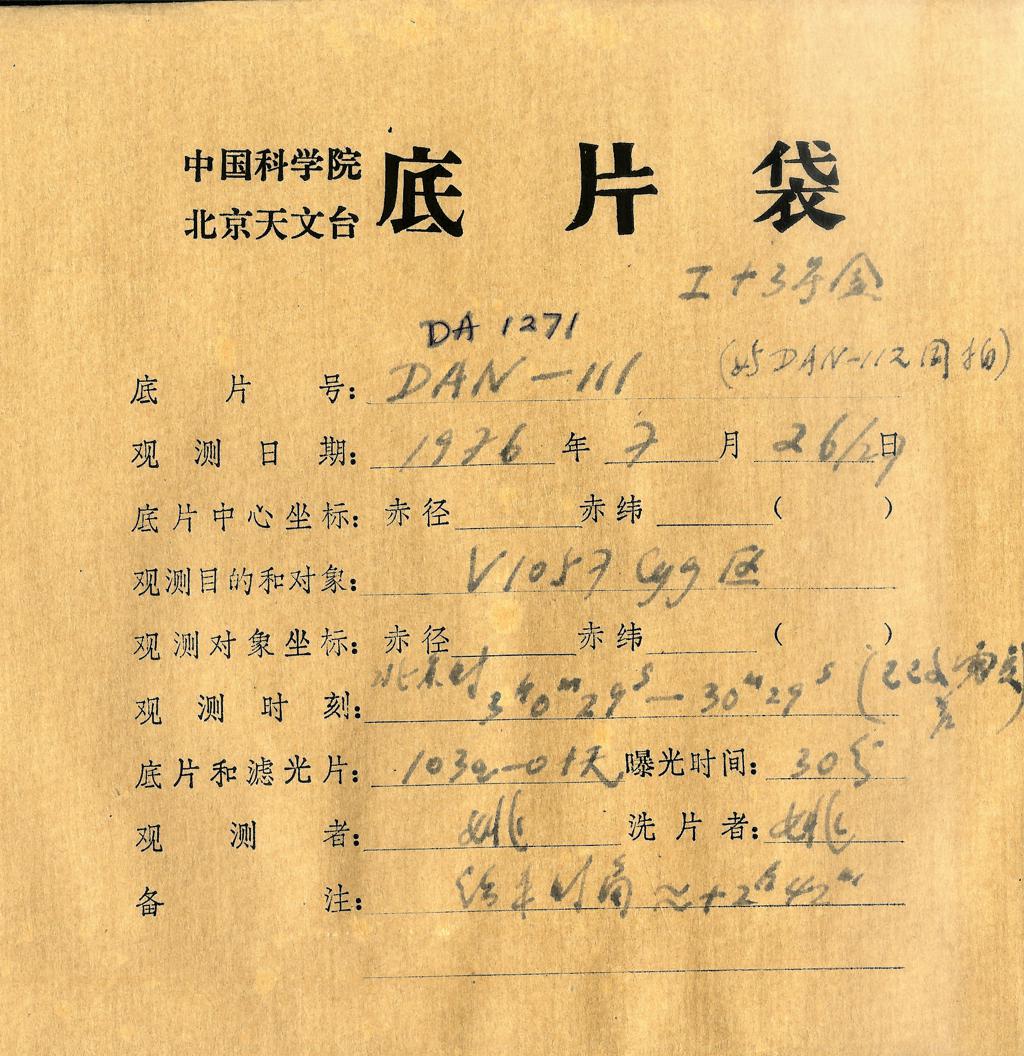 中国科学院
北京天文台
底片袋
工+3号盒
DA 1271
(与DAN-112同拍)
底片号: DAN-111
观测日期: 1976年7月26/27日
底片中心坐标: 赤径 赤纬 ( )
观测目的和对象: V1057 Cyg 区
观测对象坐标: 赤径 赤纬 ( )
北京时
观测时刻: 3h0m29s—30m29s
底片和滤光片: 103a-O+天 曝光时间: 30分
观测者: 姚 洗片者: 姚
备注: 时角≈+2h42m